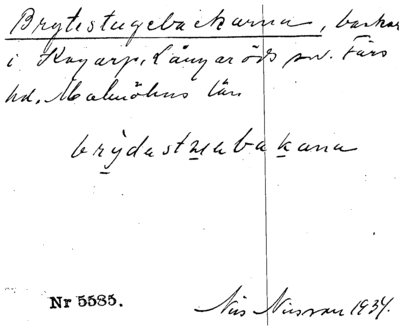 Brytestugebackarna, backar
i Kogarp, Långaröds sn. Färs
hd, Malmöhus län
brydastuabakana
Nr 5585.
Nils Nilsson 1934.